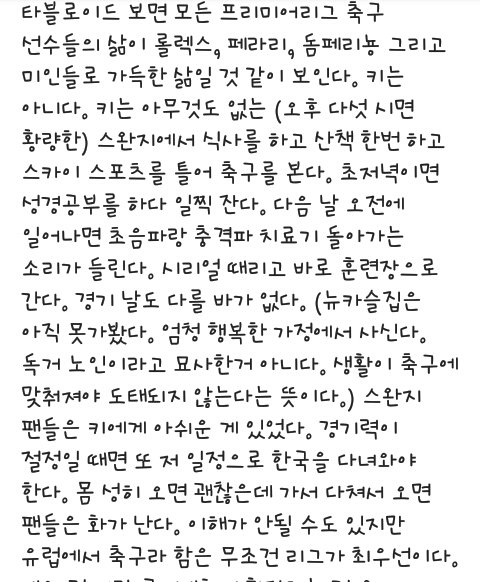 타블로이드 보면 모든 프리미어리그 축구
선수들의 삶이 롤렉스, 페라리, 돔페리뇽 그리고
미인들로 가득한 삶일 것 같이 보인다. 키는
아니다. 키는 아무것도 없는 (오후 다섯 시면
황량한) 스완지에서 식사를 하고 산책 한번 하고
스카이 스포츠를 틀어 축구를 본다. 초저녁이면
성경공부를 하다 일찍 잔다. 다음 날 오전에
일어나면 초음파랑 충격파 치료기 돌아가는
소리가 들린다. 시리얼 때리고 바로 훈련장으로
간다. 경기 날도 다를 바가 없다. (뉴카슬집은
아직 못가봤다. 엄청 행복한 가정에서 사신다.
독거 노인이라고 묘사한거 아니다. 생활이 축구에
맞춰져야 도태되지 않는다는 뜻이다.) 스완지
팬들은 키에게 아쉬운 게 있었다. 경기력이
절정일 때면 또 저 일정으로 한국을 다녀와야
한다. 몸 성히 오면 괜찮은데 가서 다쳐서 오면
팬들은 화가 난다. 이해가 안될 수도 있지만
유럽에서 축구라 함은 무조건 리그가 최우선이다.